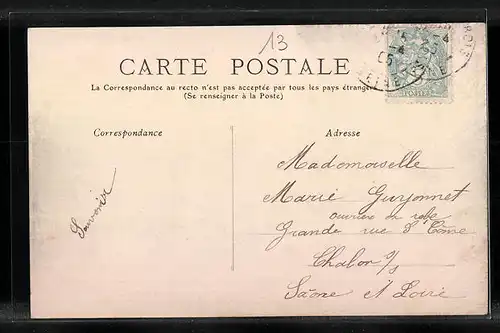 13
CARTE POSTALE
La Correspondance au recto n'est pas acceptée par tous les pays étrangers
(Se renseigner à la Poste)
Correspondance
Adresse
Souvenir
Mademoiselle
Marie Guyonnet
ouvrière en robe
Grande rue St Côme
Chalon s/s
Saône et Loire
POSTES